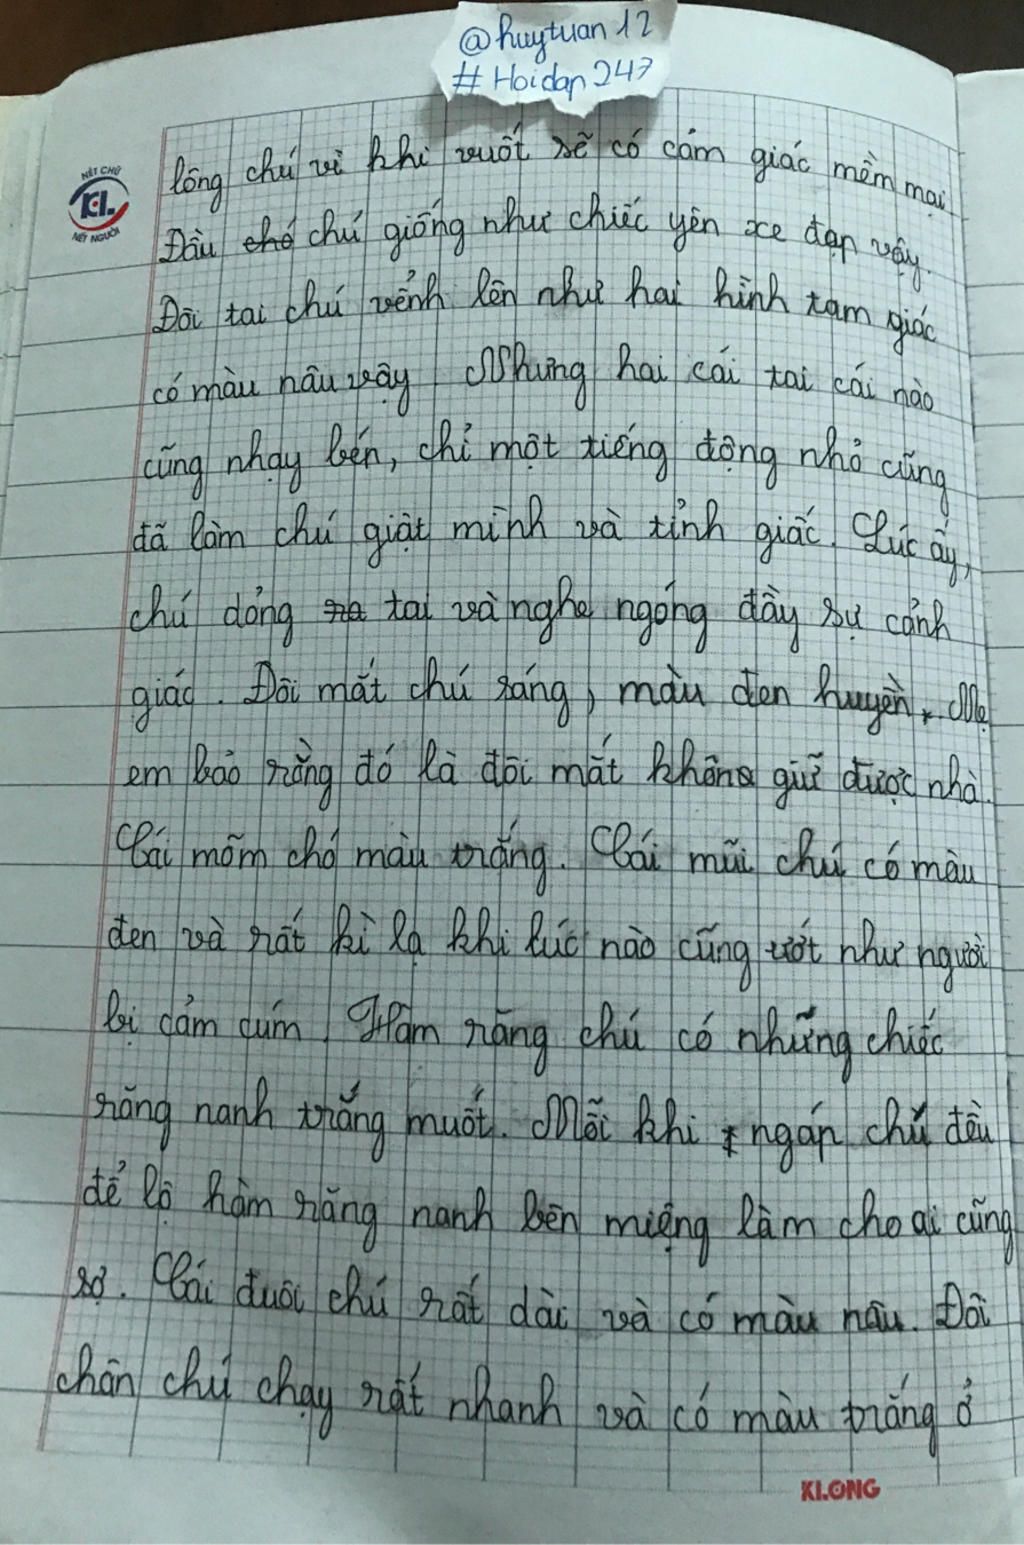 @huytuan12
#Hoidap247
NÉT CHỮ
KL
NẾT NGƯỜI
lông chú vì khi vuốt sẽ có cảm giác mềm mại
Đầu chó chú giống như chiếc yên xe đạp vậy.
Đôi tai chú vểnh lên như hai hình tam giác
có màu nâu vậy. Nhưng hai cái tai cái nào
cũng nhạy bén, chỉ một tiếng động nhỏ cũng
đã làm chú giật mình và tỉnh giấc. Lúc ấy,
chú dỏng ra tai và nghe ngóng đầy sự cảnh
giác. Đôi mắt chú sáng, màu đen huyền. Mẹ
em bảo rằng đó là đôi mắt không giữ được nhà.
Cái mõm chó màu trắng. Cái mũi chú có màu
đen và rất kì lạ khi lúc nào cũng ướt như người
bị cảm cúm. Hàm răng chú có những chiếc
răng nanh trắng muốt. Mỗi khi ngáp chú đều
để lộ hàm răng nanh bên miệng làm cho ai cũng
sợ. Cái đuôi chú rất dài và có màu nâu. Đôi
chân chú chạy rất nhanh và có màu trắng ở
KLONG